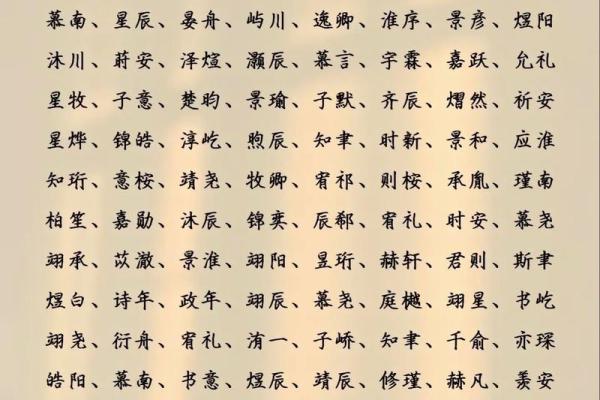 慕南、星辰、晏舟、屿川、逸卿、淮序、景彦、煜阳
沐川、蔚安、泽煊、灏辰、慕言、宇霖、嘉跃、允礼
星牧、子意、楚昀、景瑜、子默、齐辰、熠然、祈安
星烨、锦皓、淳屹、煦辰、知聿、时新、景和、应淮
知珩、意桉、靖尧、牧卿、宥祁、则桉、承胤、瑾南
柏笙、嘉勋、沐辰、锦奕、辰郗、宥礼、时安、慕尧
翊承、苡澈、景淮、翊阳、昱珩、赫轩、君则、斯聿
煜白、诗年、政年、翊辰、慕尧、庭樾、翊星、书屹
翊尧、衍舟、宥礼、洧一、子峤、知聿、千俞、亦琛
皓阳、慕南、书意、煜辰、靖辰、修瑾、赫凡、羡安